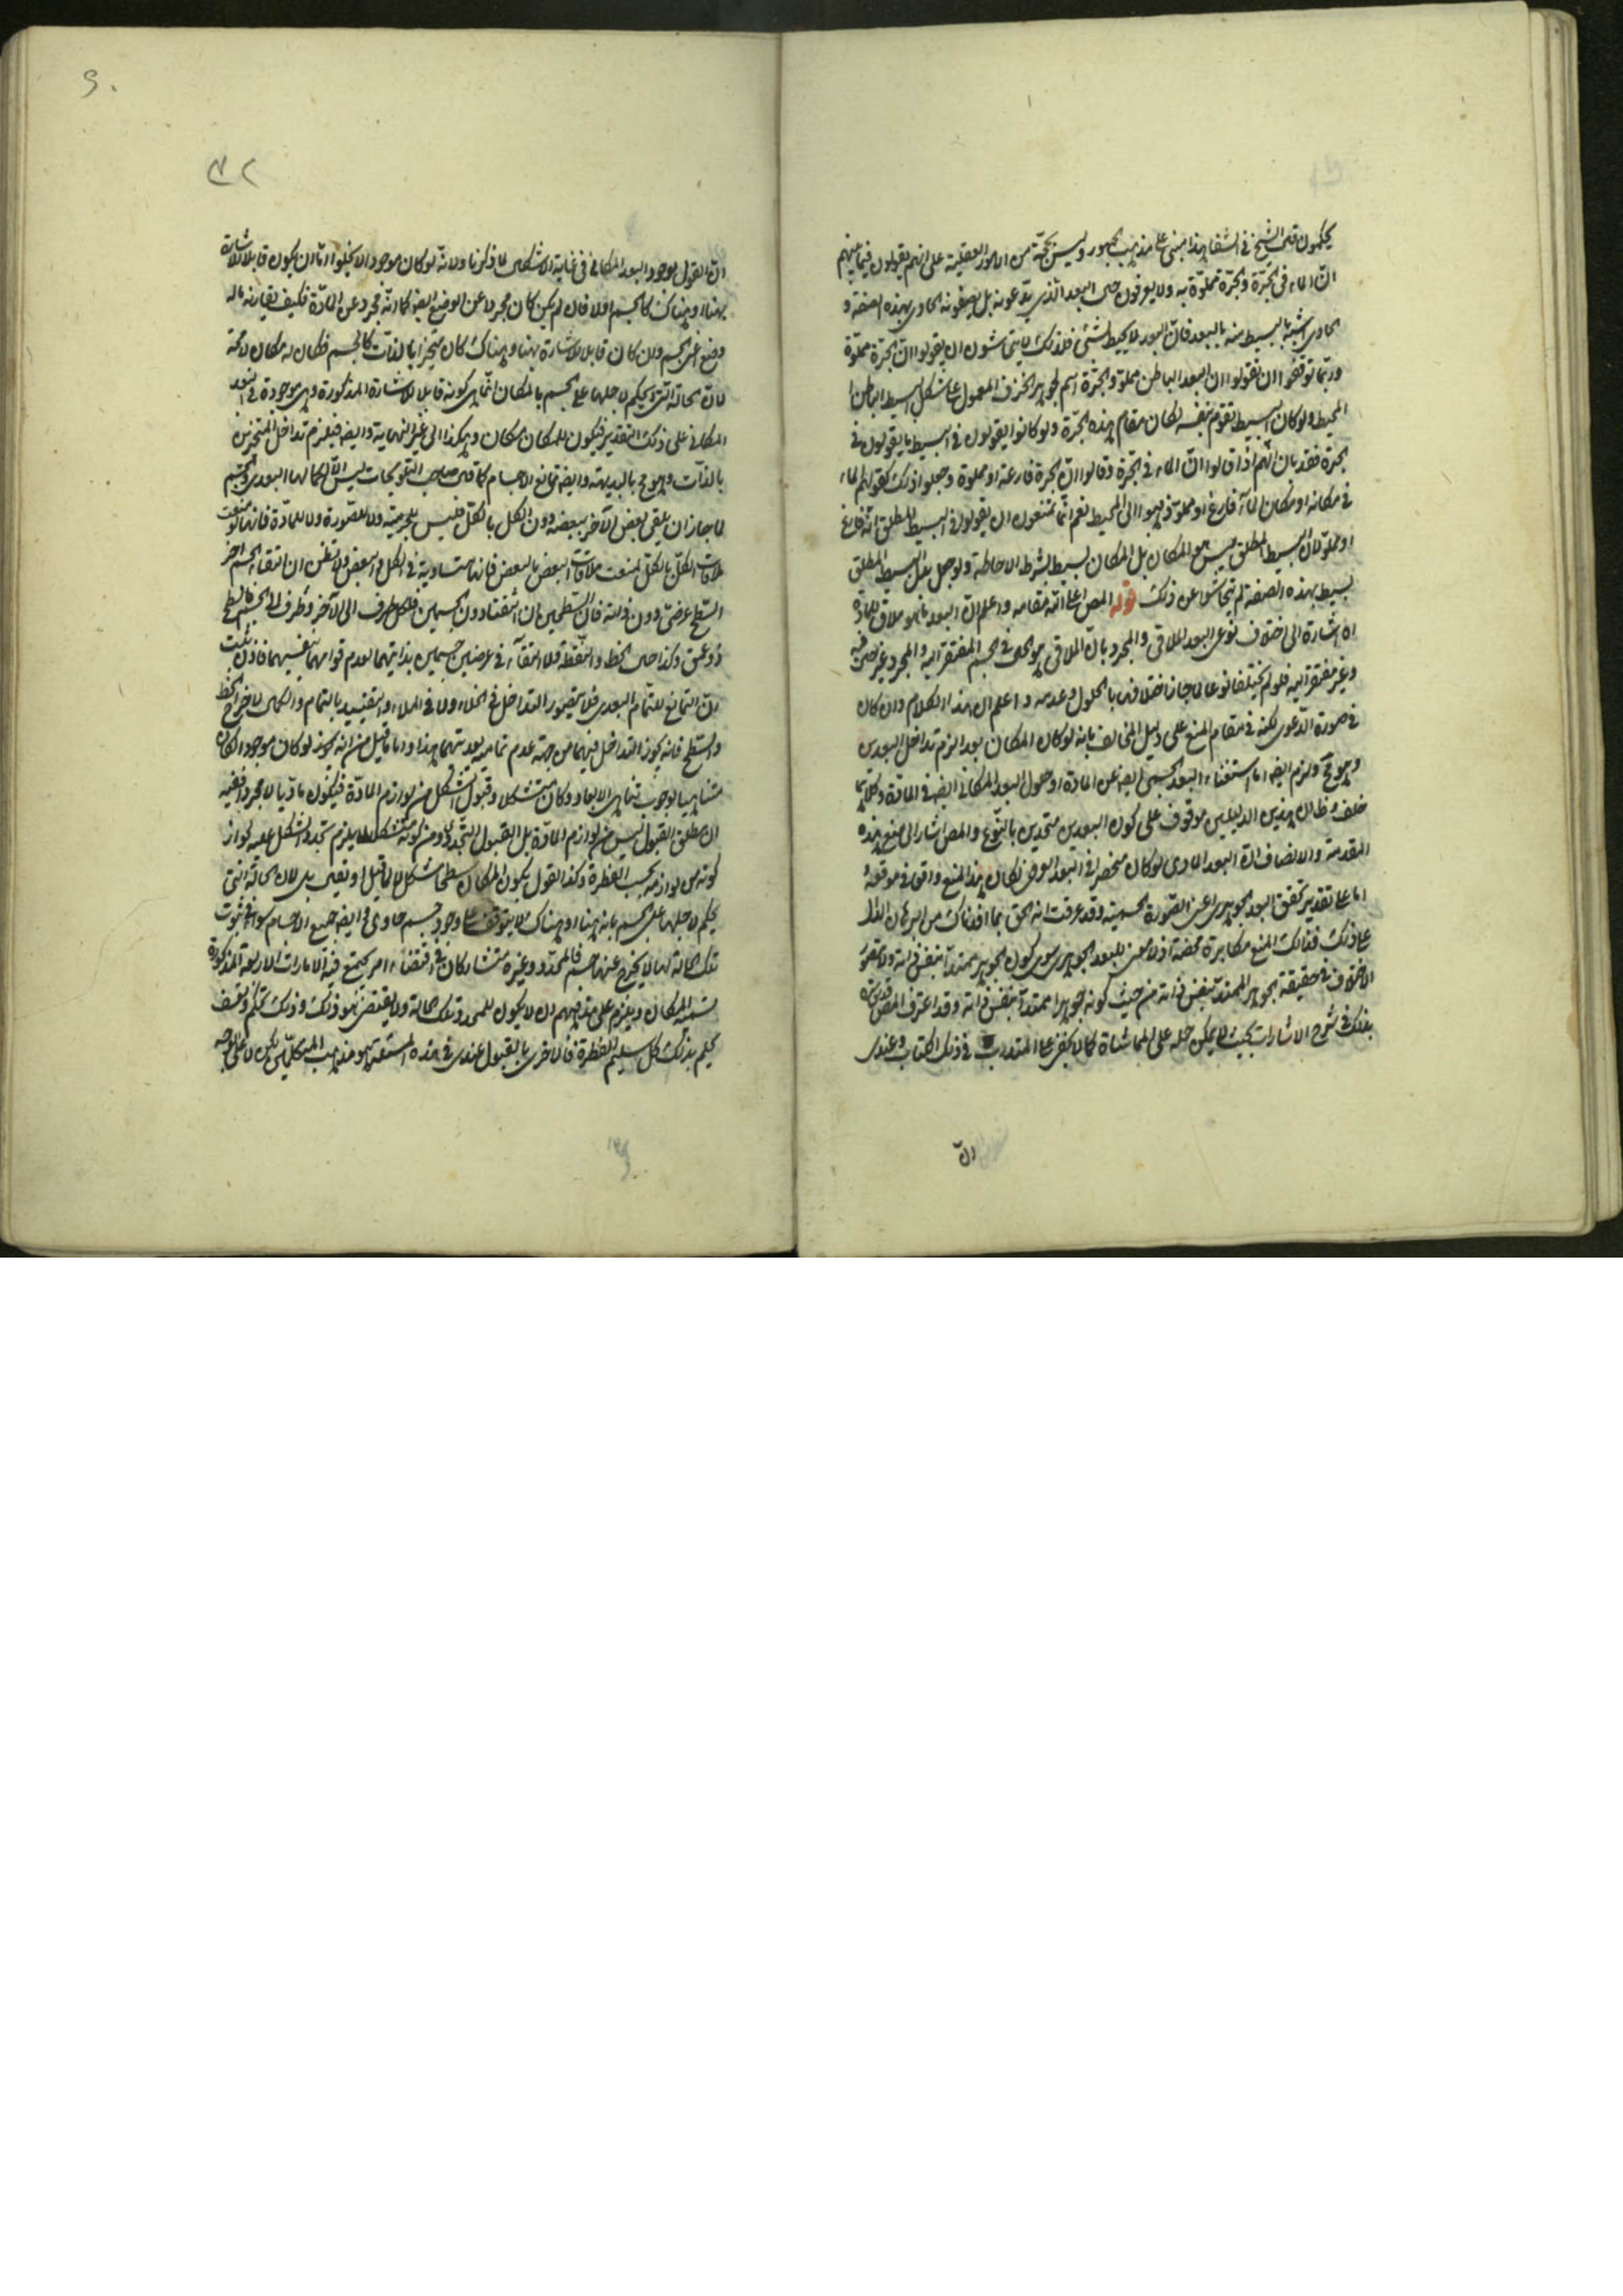 يحكمون قال الشيخ في الشفا هذا مبني على مذهب الجمهور وليس بحجة من الامور العقلية على انهم يقولون فيما بينهم
انّ الماء في الجرّة والجرّة مملوّة به ولا يعرفون حال البعد الذي يدّعونه بل يصفونه الحاوي بهذه الصفة و
الحاوي اشبه بالبسيط منه بالبعد فانّ البعد لا يحيط بشئ فلذلك لا يتحاشون ان يقولوا انّ الجرّة مملوّة
وربّما توقفوا ان يقولوا ان البعد الباطن مملوّ والجرّة اسم لجوهر الخزف المعمول على شكل البسيط الباطن
المحيط ولو كان البسيط يقوم بنفسه لكان مقام هذه الجرّة ولو كانوا يقولون في البسيط ما يقولون في
الجرة فقد بان انّهم اذا قالوا انّ الماء في الجرّة وقالوا انّ الجرة فارغة او مملوة وجعلوا ذلك كقولهم الماء
في مكانه او مكان الماء فارغ او مملوّ ذهبوا الى المحيط نعم انّما يمتنعون ان يقولوا في البسيط المطلق انّه فارغ
او مملوّ لان البسيط المطلق ليس هو المكان بل المكان بسيط بشرط الاحاطة ولو جعل بدل البسيط المطلق
بسيط بهذه الصفة لم يتحاشوا عن ذلك قوله المص اعلى الله مقامه واعلم انّ البعد منه ملاق للمادة
اه اشارة الى اختلاف نوعي البعد الملاقي والمجرد بانّ الملاقي هو الحال في الجسم المفتقر اليه والمجرد غير حال فيه
وغير مفتقر اليه فلو لم يختلفا نوعا لما جاز اختلافهما بالحلول وعدمه واعلم ان هذا الكلام وان كان
في صورة الدّعوى لكنه في مقام المنع على دليل المخالف بانه لو كان المكان بعدا لزم تداخل البعدين
وهو مح ولزم ايض اما استغناء البعد الجسمي ايض عن المادة او حلول البعد المكاني ايض في المادة وكلاهما
خلف وظ ان هذين الدليلين موقوف على كون البعدين متحدين بالنّوع والمص اشار الى منع هذه
المقدمة والانصاف انّ البعد المادي لو كان منحصرا في البعد العرضي لكان هذا المنع واقعا في موقعه و
اما على تقدير تحقق البعد الجوهري اعني الصورة الجسمية وقد عرفت انه الحق بما افدناك من البرهان الدال
على ذلك فذلك المنع مكابرة محضة اذ لا معنى للبعد الجوهري سوى كون الجوهر ممتدا بنفس ذاته ولا يتصور
الاختلاف في حقيقة الجوهر الممتد بنفس ذاته من حيث كونه جوهرا ممتدا بنفس ذاته وقد اعترف المص قدس سره
بذلك في شرح الاشارات بحيث لا يمكن حمله على المماشاة كما لا يخفى على المتدرب في ذلك الكتاب وعندي
انّ
٤٢
انّ القول بوجود البعد المكاني في غاية الاشكال لما ذكرنا ولانه لو كان موجودا لا يخلوا امّا ان يكون قابلا للاشارة
بهنا وهناك كالجسم اولا فان لم يكن كان مجردا عن الوضع ايض كما انّه مجرد عن المادّة فكيف يقارنه ماله
وضع اعني الجسم وان كان قابلا للاشارة بهنا وهناك كان متحيزا بالذات كالجسم فكان له مكان لا محة
لانّ الحالة التي يحكم لاجلها على الجسم بالمكان انّما هي كونه قابلا للاشارة المذكورة وهي موجودة في البعد
المكاني على ذلك التقدير فيكون للمكان مكان وهكذا الى غير النهاية وايض فيلزم تداخل المتحيزين
بالذات وهو مح بالبديهة وايض تمانع الاجسام كما قال صاحب التلويحات ليس الّا لكمالها البعدي والجسم
لما جاز ان يلقى بعض الآخر ببعضه دون الكل بالكل فليس للجرمية ولا للصورة ولا للمادة فانها لو منعت
ملاقات الكل بالكل لمنعت ملاقات البعض بالبعض فانها متساوية في الكل والبعض ولا تظنن ان التقاء الجسم اخر
السّطح عرضي دون ذاته فان السّطحين ان التقتا دون الجسمين فلكل طرف الى الآخر وطرف الى الجسم فالسطح
ذو عمق وكذا حال الخط والنقطة فلا التقاء في عرضين جسمين بذاتيهما لعدم قوامهما بنفسيهما فاذن ثبت
انّ التمانع للتمام البعدي فلا يتصور التداخل في الخلاء ولا في الملاء والتقييد بالتمام والكمال لاخراج الخط
والسّطح فانه يجوز التداخل فيهما من جهة عدم تمامية بعديتهما هذا واما ما قيل من انه يجوز لو كان موجودا لكان
متناهيا لوجوب تناهي الابعاد وكان متشكلا وقبول التشكل من لوازم المادّة فيكون ماديا لا مجردا ففيه
ان مطلق القبول ليس من لوازم المادّة بل القبول التجددي ومن كونه متشكلا لا يلزم تجدد التشكل عليه لجواز
كونه من لوازمه بحسب الفطرة وكذا القول بكون المكان سطحا مشكل لا لما قيل او نقيل بل لان الحالة التي
يحكم لاجلها على الجسم بانه هنا او هناك لا يتوقف على وجود جسم حاوي وايض جميع الاجسام سواء في ثبوت
تلك الحالة لها لا يخرج عنها جسم فالمحدّد وغيره متشاركان في اقتضاء امر يجتمع فيه الامارات الاربعة المذكورة
لتسمية المكان ويلزم على مذهبهم ان لا يكون للمحدد تلك الحالة ولا يقتضي هو ذلك وذلك تحكّم وتعسف
يحكم بذلك كل سليم الفطرة فالاحرى بالقبول عندي في هذه المسئلة هو مذهب المتكلمين لكن لا على الوجه